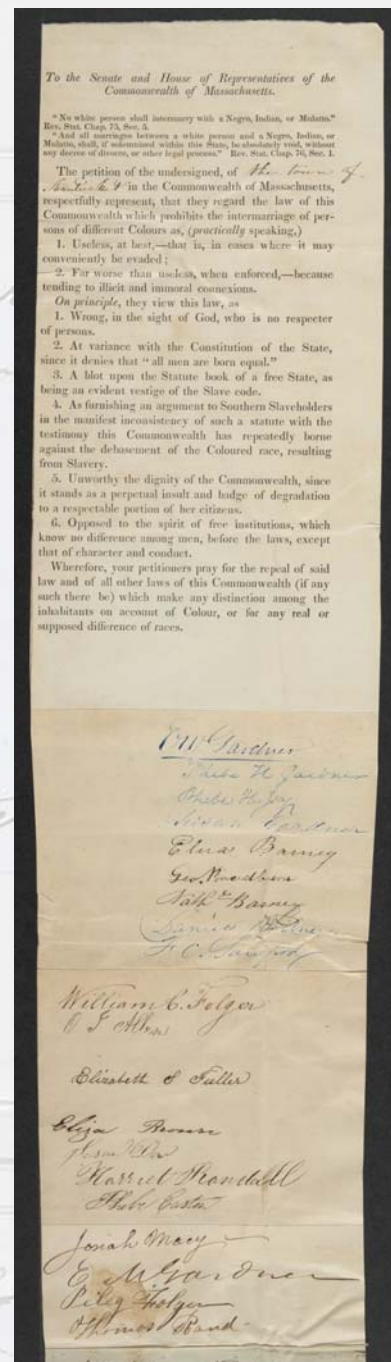 To the Senate and House of Representatives of the
Commonwealth of Massachusetts.
"No white person shall intermarry with a Negro, Indian, or Mulatto."
Rev. Stat. Chap. 75, Sec. 5.
"And all marriages between a white person and a Negro, Indian, or
Mulatto, shall, if solemnized within this State, be absolutely void, without
any decree of divorce, or other legal process." Rev. Stat. Chap. 76, Sec. 1.
The petition of the undersigned, of the town of
in the Commonwealth of Massachusetts,
respectfully represent, that they regard the law of this
Commonwealth which prohibits the intermarriage of per-
sons of different Colours as, (practically speaking,)
1. Useless, at best,—that is, in cases where it may
conveniently be evaded;
2. Far worse than useless, when enforced,—because
tending to illicit and immoral connexions.
On principle, they view this law, as
1. Wrong, in the sight of God, who is no respecter
of persons.
2. At variance with the Constitution of the State,
since it denies that "all men are born equal."
3. A blot upon the Statute book of a free State, as
being an evident vestige of the Slave code.
4. As furnishing an argument to Southern Slaveholders
in the manifest inconsistency of such a statute with the
testimony this Commonwealth has repeatedly borne
against the debasement of the Coloured race, resulting
from Slavery.
5. Unworthy the dignity of the Commonwealth, since
it stands as a perpetual insult and badge of degradation
to a respectable portion of her citizens.
6. Opposed to the spirit of free institutions, which
know no difference among men, before the laws, except
that of character and conduct.
Wherefore, your petitioners pray for the repeal of said
law and of all other laws of this Commonwealth (if any
such there be) which make any distinction among the
inhabitants on account of Colour, or for any real or
supposed difference of races.
Gardner
Phebe H Gardner
Phebe H.
Susan Gardner
Eliza Barney
Geo. Bradburn
Nathl Barney
F. C. Sanford
William C. Folger
Elizabeth S Fuller
Eliza
Harriet Randall
Phebe
Josiah Macy
E M Gardner
Peleg Folger
Thomas Rand